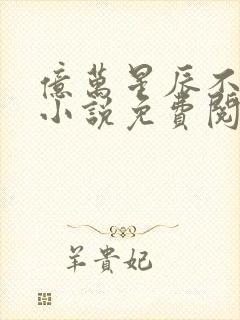 億萬星辰不
小說免費閱
羊貴妃